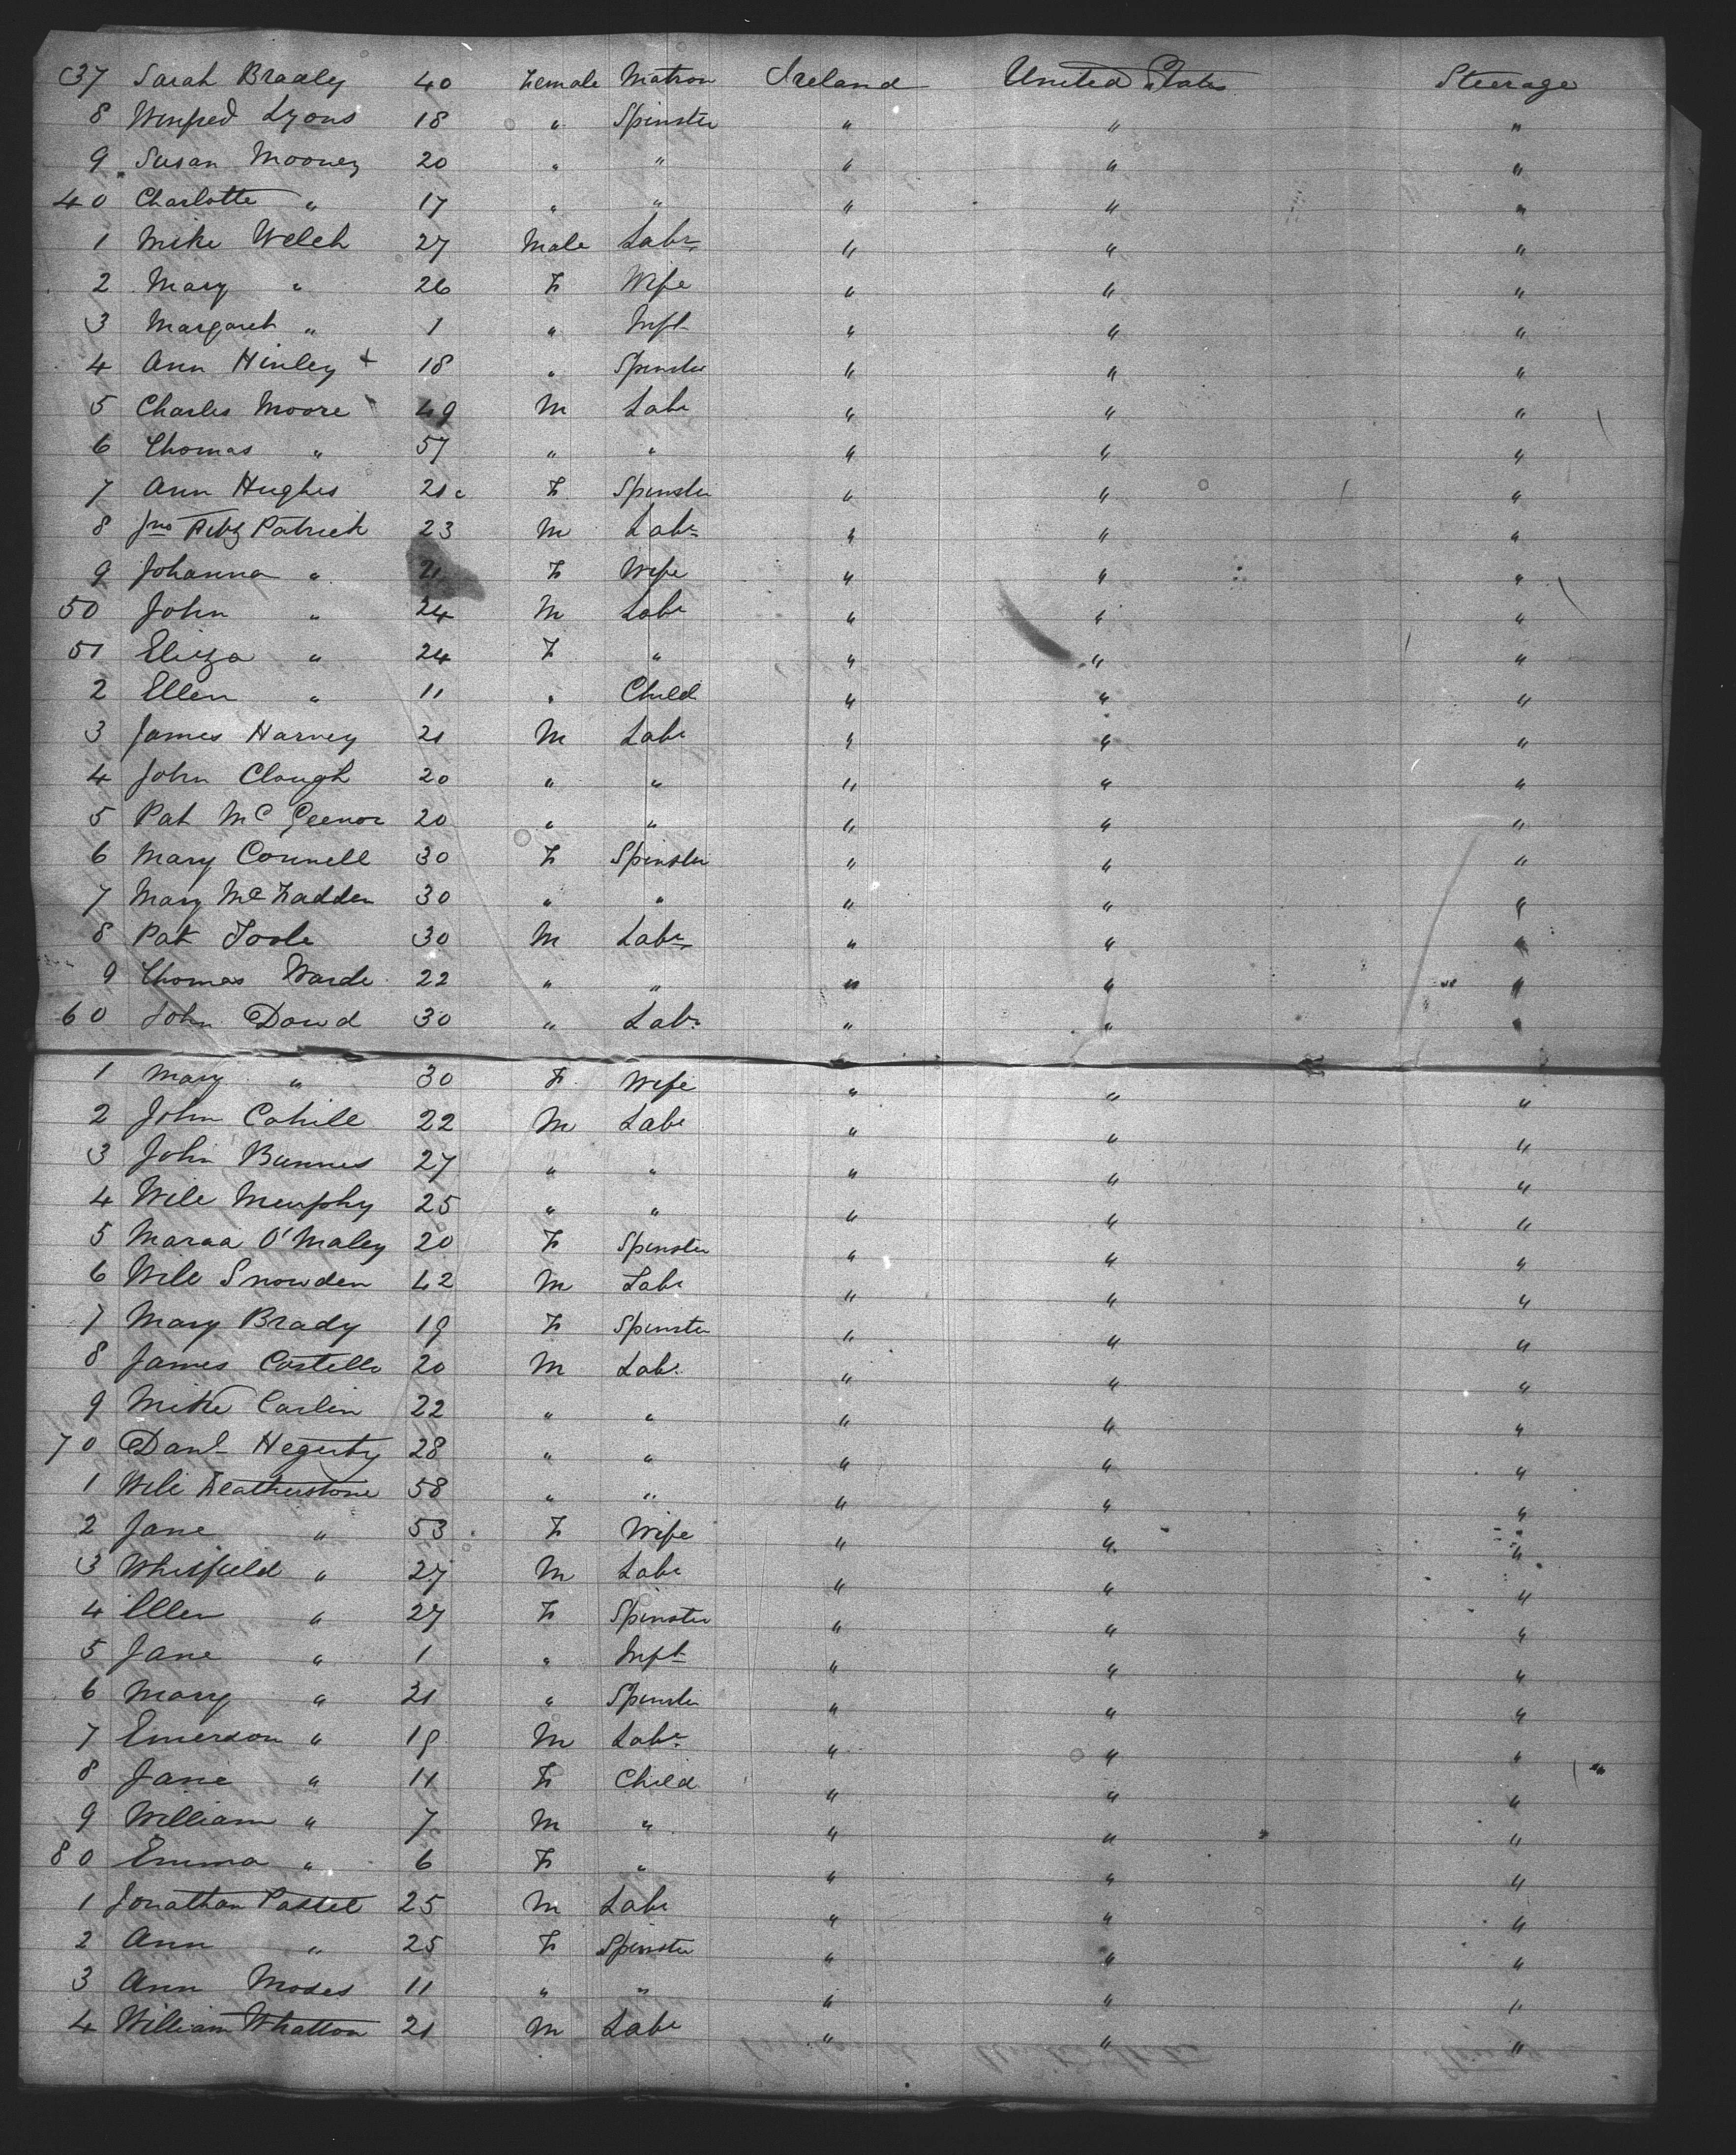 37 Sarah Bradly 40 Female Matron Ireland United States Steerage
8 Winfred Lyons 18 " Spinster " " "
9 Susan Mooney 20 " " " " "
40 Charlotte " 17 " " " " "
1 Mike Welch 27 Male Labr " " "
2 Mary " 26 F Wife " " "
3 Margaret " 1 " Inft " " "
4 Ann Hinley + 18 " Spinster " " "
5 Charles Moore 49 M Labr " " "
6 Thomas " 57 " " " " "
7 Ann Hughes 21 F Spinster " " "
8 Jno Fitz Patrick 23 M Labr " " "
9 Johanna " 21 F Wife " " "
50 John " 24 M Labr " " "
51 Eliza " 24 F " " " "
2 Ellen " 11 " Child " " "
3 James Harvey 21 M Labr " " "
4 John Clough 20 " " " " "
5 Pat Mc Geenor 20 " " " " "
6 Mary Connell 30 F Spinster " " "
7 Mary McFadden 30 " " " " "
8 Pat Toole 30 M Labr " " "
9 Thomas Warde 22 " " " " "
60 John Dowd 30 " Labr " " "
1 Mary " 30 F Wife " " "
2 John Cahill 22 M Labr " " "
3 John Bunnes 27 " " " " "
4 Will Murphy 25 " " " " "
5 Maraa O'Maley 20 F Spinster " " "
6 Will Snowden 42 M Labr " " "
7 Mary Brady 19 F Spinster " " "
8 James Costello 20 M Labr " " "
9 Mike Carlin 22 " " " " "
70 Danl Hegerty 28 " " " " "
1 Will Featherstone 58 " " " " "
2 Jane " 53 F Wife " " "
3 Whitfield " 27 M Labr " " "
4 Ellen " 27 F Spinster " " "
5 Jane " 1 " Inft " " "
6 Mary " 21 " Spinster " " "
7 Emerson " 19 M Labr " " "
8 Jane " 11 F Child " " "
9 William " 7 M " " " "
80 Emma " 6 F " " " "
1 Jonathan Pastel 25 M Labr " " "
2 Ann " 25 F Spinster " " "
3 Ann Moses 11 " " " " "
4 William Whatton 21 M Labr " " "